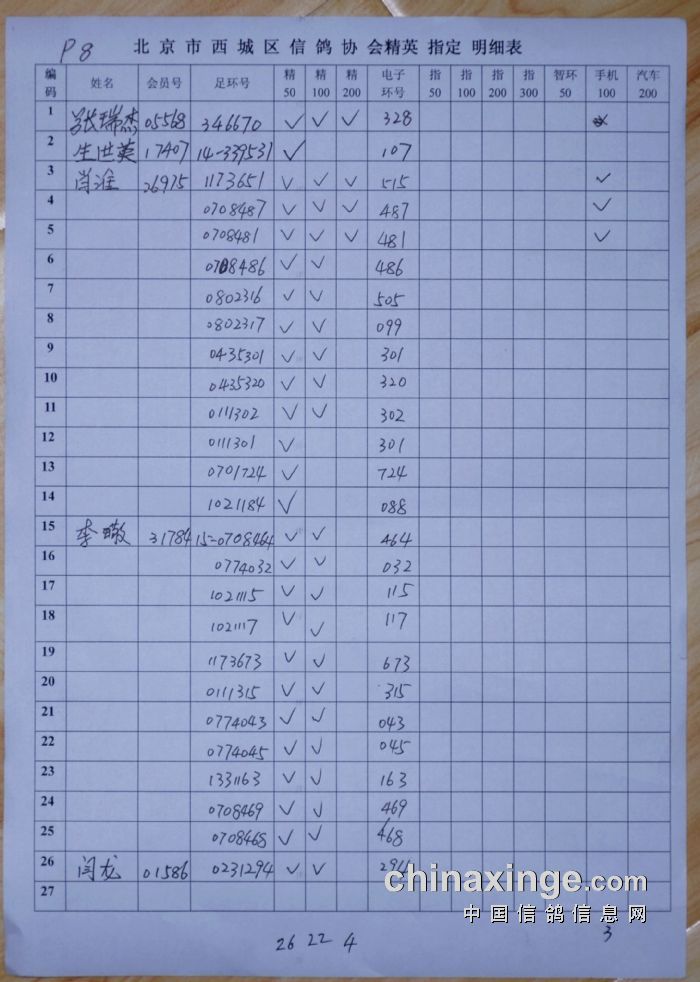 P8
北京市西城区信鸽协会精英指定明细表
编码 姓名 会员号 足环号 精50 精100 精200 电子环号 指50 指100 指200 指300 智环50 手机100 汽车200
1 张瑞杰 05568 346670 ✓ ✓ ✓ 328
2 生世英 17407 14-339531 ✓ 107
3 肖淮 26975 1173651 ✓ ✓ ✓ 515 ✓
4 0708487 ✓ ✓ ✓ 487 ✓
5 0708481 ✓ ✓ ✓ 481 ✓
6 0708486 ✓ ✓ 486
7 0802316 ✓ ✓ 505
8 0802317 ✓ ✓ 099
9 0435301 ✓ ✓ 301
10 0435320 ✓ ✓ 320
11 0111302 ✓ ✓ 302
12 0111301 ✓ 301
13 0701724 ✓ 724
14 1021184 ✓ 088
15 李 31784 15-0708464 ✓ ✓ 464
16 0774032 ✓ ✓ 032
17 1021115 ✓ ✓ 115
18 1021117 ✓ ✓ 117
19 1173673 ✓ ✓ 673
20 0111315 ✓ ✓ 315
21 0774043 ✓ ✓ 043
22 0774045 ✓ ✓ 045
23 1331163 ✓ ✓ 163
24 0708469 ✓ ✓ 469
25 0708468 ✓ ✓ 468
26 闫龙 01586 0231294 ✓ ✓ 294
27
chinaxinge.com
中国信鸽信息网
26 22 4 3